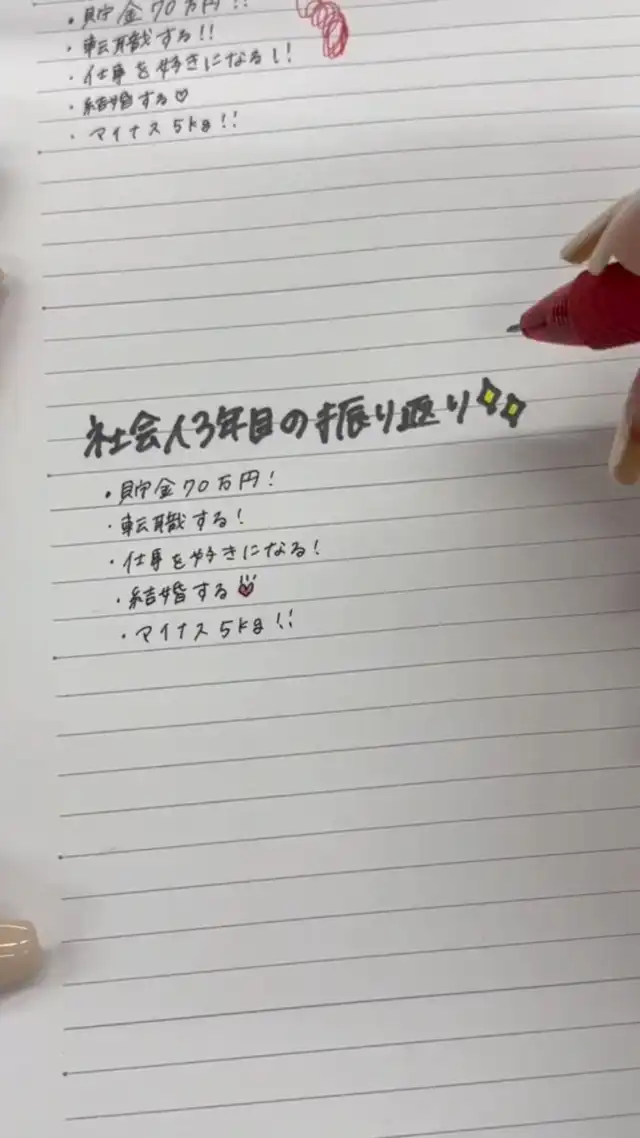 ・貯金70万円!!
・転職する!!
・仕事を好きになる!!
・結婚する♡
・マイナス5kg!!
社会人3年目の振り返り
・貯金70万円!
・転職する!
・仕事を好きになる!
・結婚する♡
・マイナス5kg!!